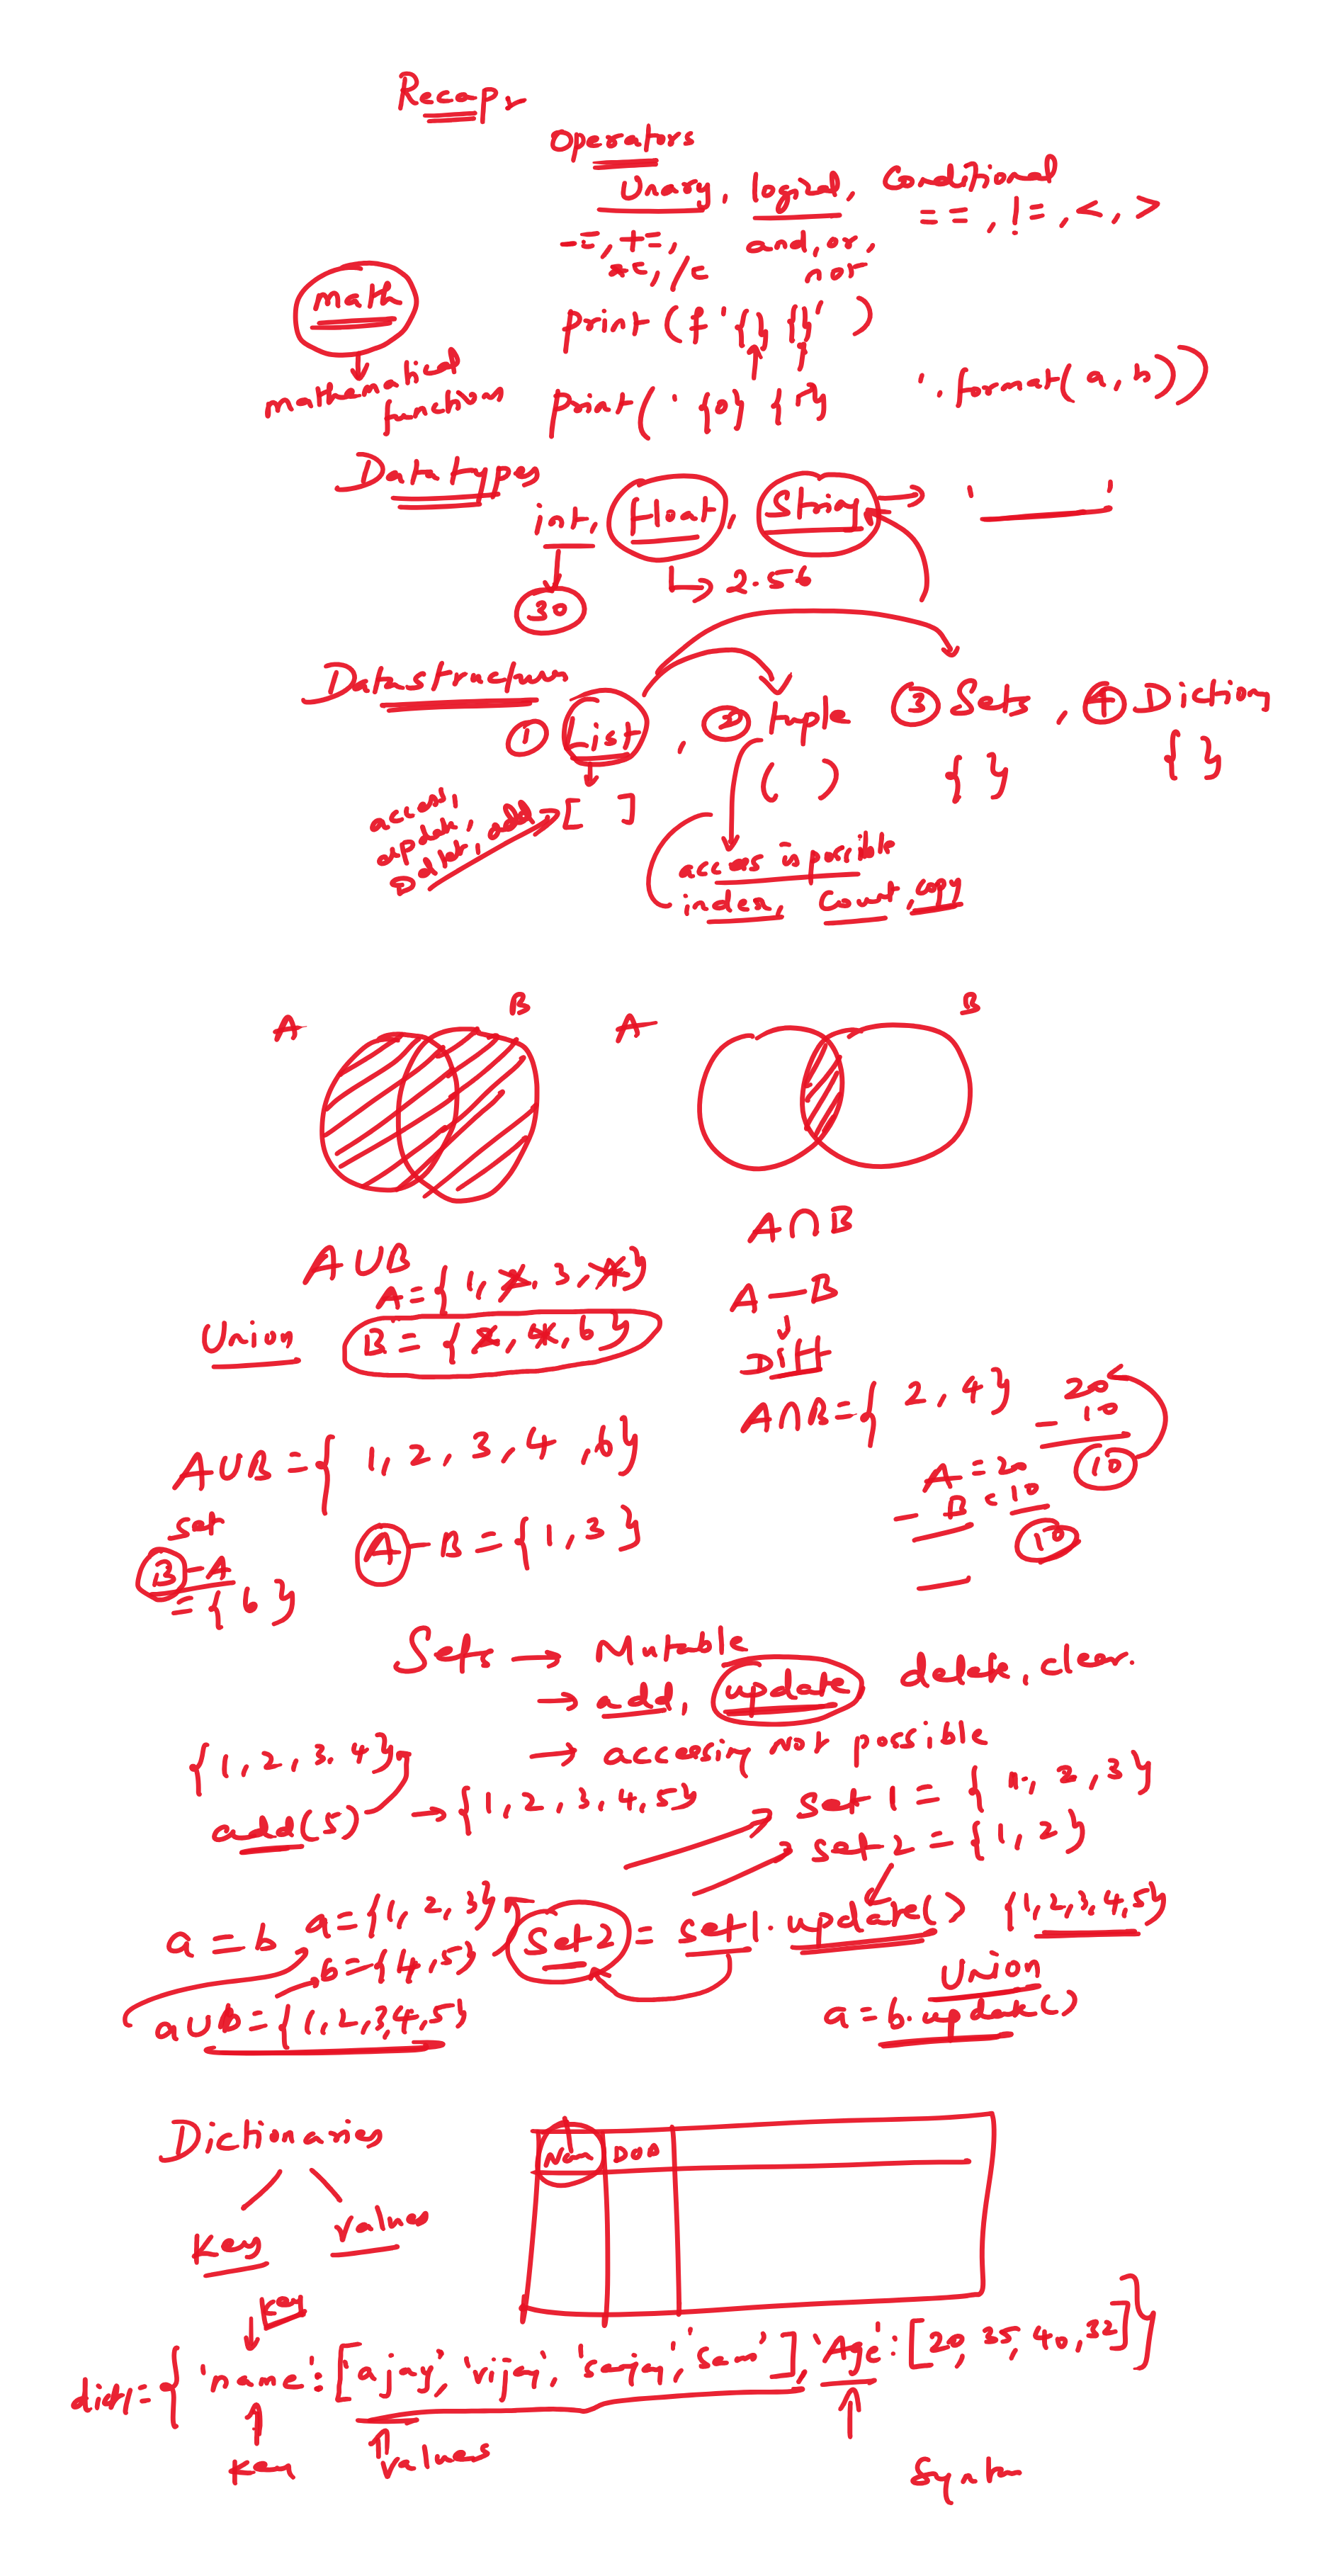 Recap
Operators
Unary, logical, Conditional
-=, +=, and, or, ==, !=, <, >
*=, /= nor
math
print (f '{} {}' )
mathematical function
print( ' {0} {1} '. format(a, b))
Data types
int, float, String → ' '
30
2.56
Data structures
① List , ② tuple ③ Sets , ④ Diction
[ ] ( ) { } { }
access,
update,
delete, add
access is possible
index, count, copy
A B A B
A∪B
A∩B
A = {1, 2, 3, 4}
A - B
Union B = {2, 4, 6}
Diff
A∩B = { 2, 4} 20
- 10
10
A∪B = { 1, 2, 3, 4, 6}
A = 20
- B = 10
10
set
A - B = {1, 3}
B - A
= {6}
Sets → Mutable
→ add, update delete, clear.
→ accessing not possible
{1, 2, 3. 4}
add(5) → {1, 2, 3, 4, 5}
set 1 = {1, 2, 3}
set 2 = {1, 2}
a = b a = {1, 2, 3}
b = {4, 5}
set 2 = set1. update() {1, 2, 3, 4, 5}
Union
a∪b = {1, 2, 3, 4, 5}
a = b. update()
Dictionaries
Key values
Nam DOB
key
dict = { 'name': ['ajay', 'vijay', 'sanjay', 'sam'], 'Age': [20, 35, 40, 32] }
key values